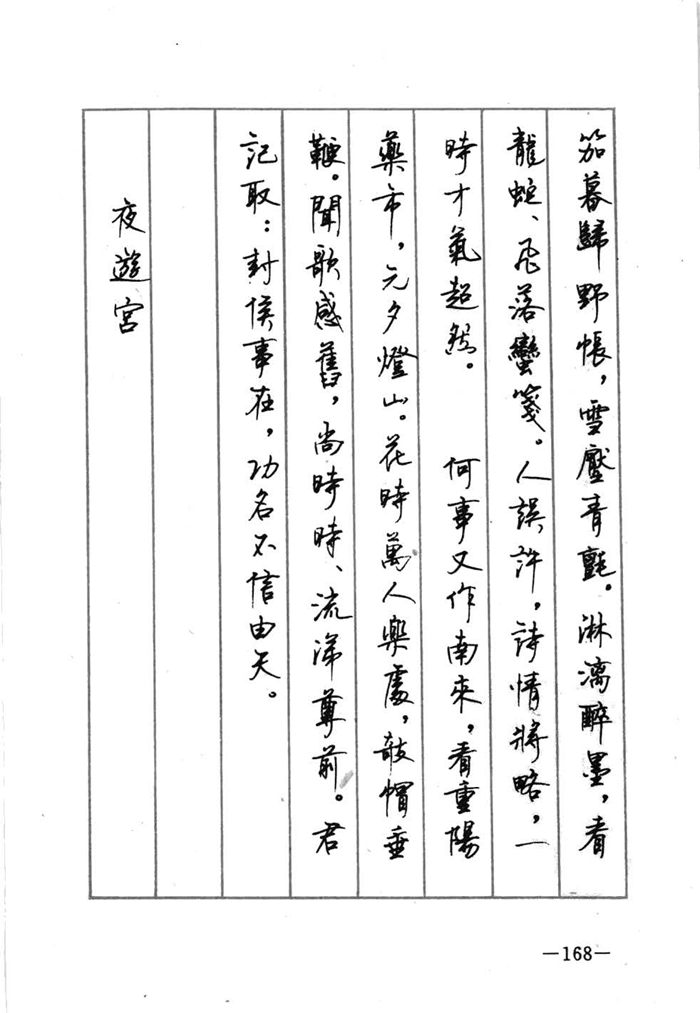 笳暮歸野帳，雪壓青氈。淋漓醉墨，看
龍蛇、飛落蠻箋。人誤許，詩情將略，一
時才氣超然。　　何事又作南來，看重陽
藥市，元夕燈山。花時萬人樂處，敧帽垂
鞭。聞歌感舊，尚時時、流涕尊前。君
記取：封侯事在，功名不信由天。
夜遊宮
—168—